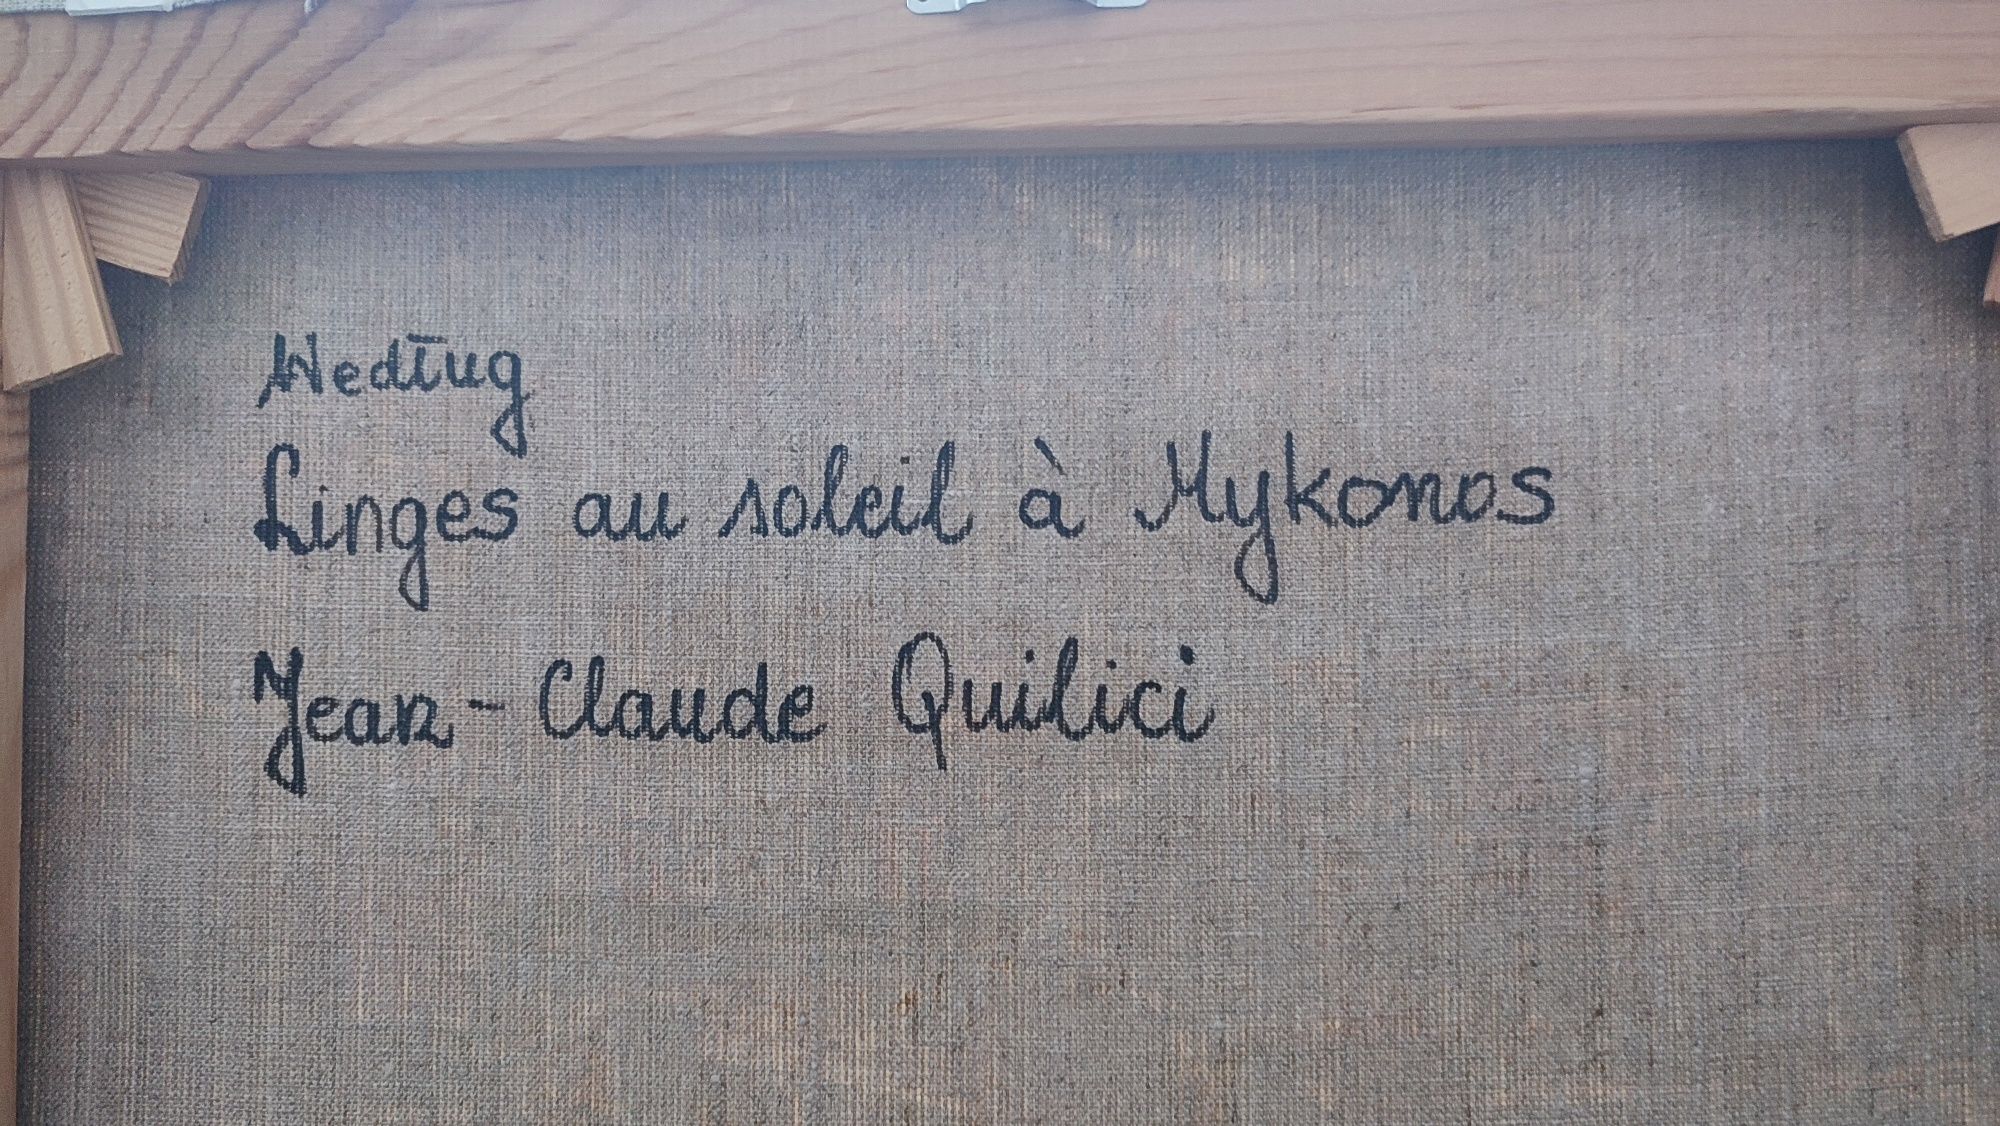 Według
Linges au soleil à Mykonos
Jean-Claude Quilici